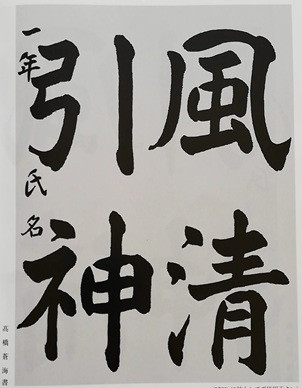 風清
引神
一年 氏名
高橋蒼海書